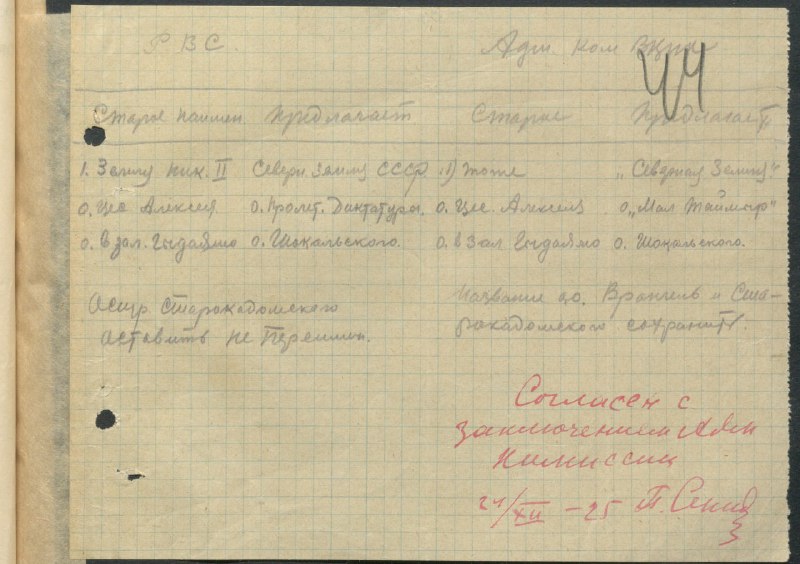 Р В С. Адм ком ВЦИК
44
Старое наимен. Предлагает Старое Предлагает
1. Землю Ник. II Северн. Землю СССР. 1) тоже „Северная Земля"
о. Цес Алексея о. Пролет. Диктатуры. о. Цес. Алексея о. „Мал Таймыр"
о. в зал. Гыдаямо о. Шокальского. о. в зал Гыдаямо о. Шокальского.
Остр. Старокадомского Название о.о. Врангель и Ста-
оставить не переимен. рокадомского сохранить.
Согласен с
заключением Адм
Комиссии
21/XII – 25